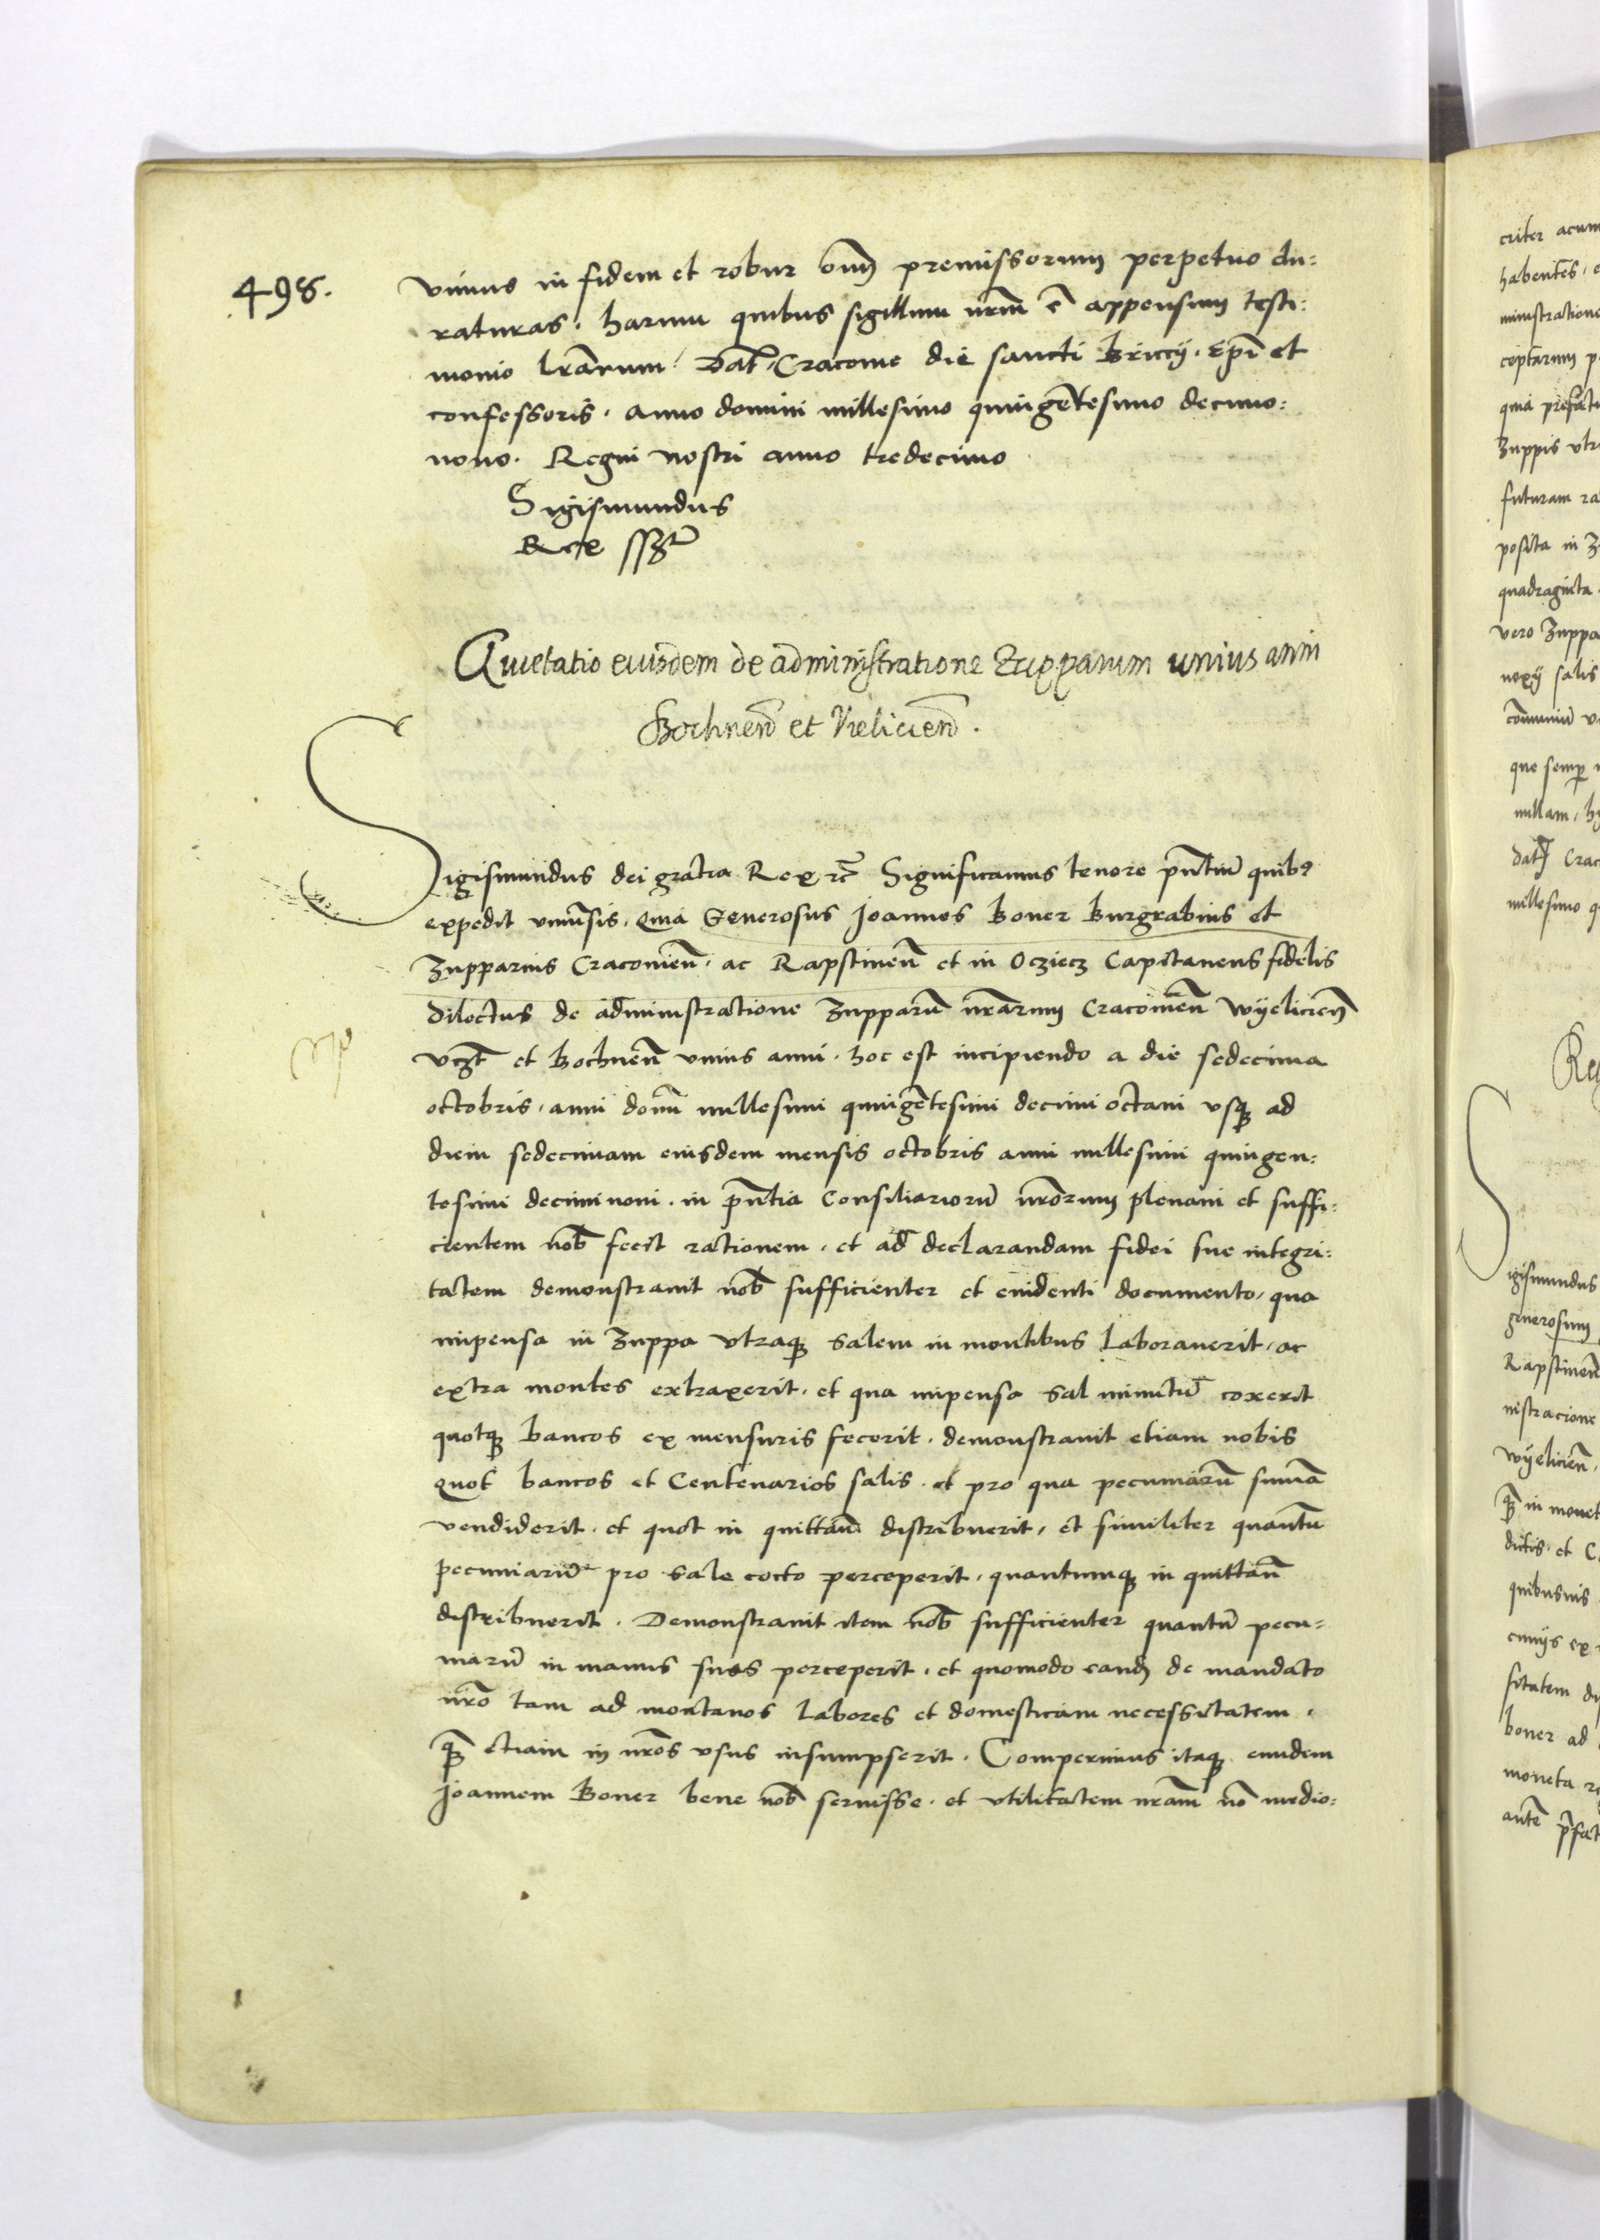 498.
vimus in fidem et robur om̄ premissorum perpetuo du:
raturas. harum quibus sigillum nr̄m ē appensum testi:
monio lr̄arum. Dat̄ Cracovie die sancti Briccij. Ep̄i et
confessoris. anno domini millesimo quingētesimo decimo:
nono. Regni nostri anno tredecimo
Sigismundus
Rex
Quietatio eiusdem de administratione Zupparum unius anni
Bochnen̄ et Vieliciен̄.
Sigismundus dei gratia Rex rc̄ Significamus tenore pn̄tiū quibꝰ
expedit univ̄sis. Quia Generosus Joannes Boner Burgrabius et
Zupparius Cracovien̄. ac Rapstinen̄ et in Ocziecz Capitaneus fidelis
dilectus de administratione Zupparū nr̄arum Cracovien̄ wyelicien̄
vczt̄ et Bochnen̄ unius anni. hoc est incipiendo a die sedecima
octobris. anni domī millesimi quingētesimi decimi octavi usqꝫ ad
diem sedecimam eiusdem mensis octobris anni millesimi quingen:
tesimi decimi noni. in pn̄tia Consiliariorū nr̄orum plenam et suffi:
cientem nob̄ fecit rationem. et ad declarandam fidei sue integri:
tatem demonstravit nob̄ sufficienter et evidenti documento, qua
impensa in Zuppa utraqꝫ salem in montibus laboraverit. ac
extra montes extraxerit. et qua impensa sal minutū coxerit
quotqꝫ bancos ex mensuris fecerit. demonstravit etiam nobis
quot bancos et Centenarios salis. et pro qua pecuniarū sum̄a
vendiderit. et quot in quittan̄ distribuerit, et similiter quantū
pecuniarū pro sale cocto perceperit. quantumqꝫ in quittan̄
distribuerit. Demonstravit item nob̄ sufficienter quantū pecu=
niarū in manus suas perceperit. et quomodo eand̄ de mandato
nr̄o tam ad montanos labores et domesticam necessitatem.
qꝫ̄ etiam in nr̄os usus insumpserit. Comperimus itaqꝫ eundem
Joannem Boner bene nob̄ servisse. et utilitatem nr̄am nō medio:
criter
habentes.
ministratione
ceptarum
quia prefatu
Zuppis utr
futuram ra
posita in
quadraginta
vero Zuppa
nexij salis
que semp̄
nullam.
Dat̄ Crac
millesimo q
Re
Sigismundus
generosum
Rapstinen̄
nistracione
wyelicien̄
qꝫ̄ in monet
dictis. et C
quibusvis
cunijs ex
sitatem
boner ad
moneta
autē p̄fat